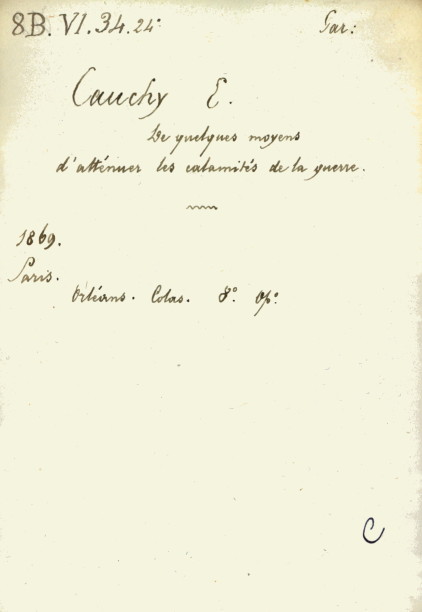 8B. VI. 34. 24° Gar:
Cauchy E.
De quelques moyens
d'atténuer les calamités de la guerre.
1869.
Paris.
Orléans. Colas. 8° Op°
C